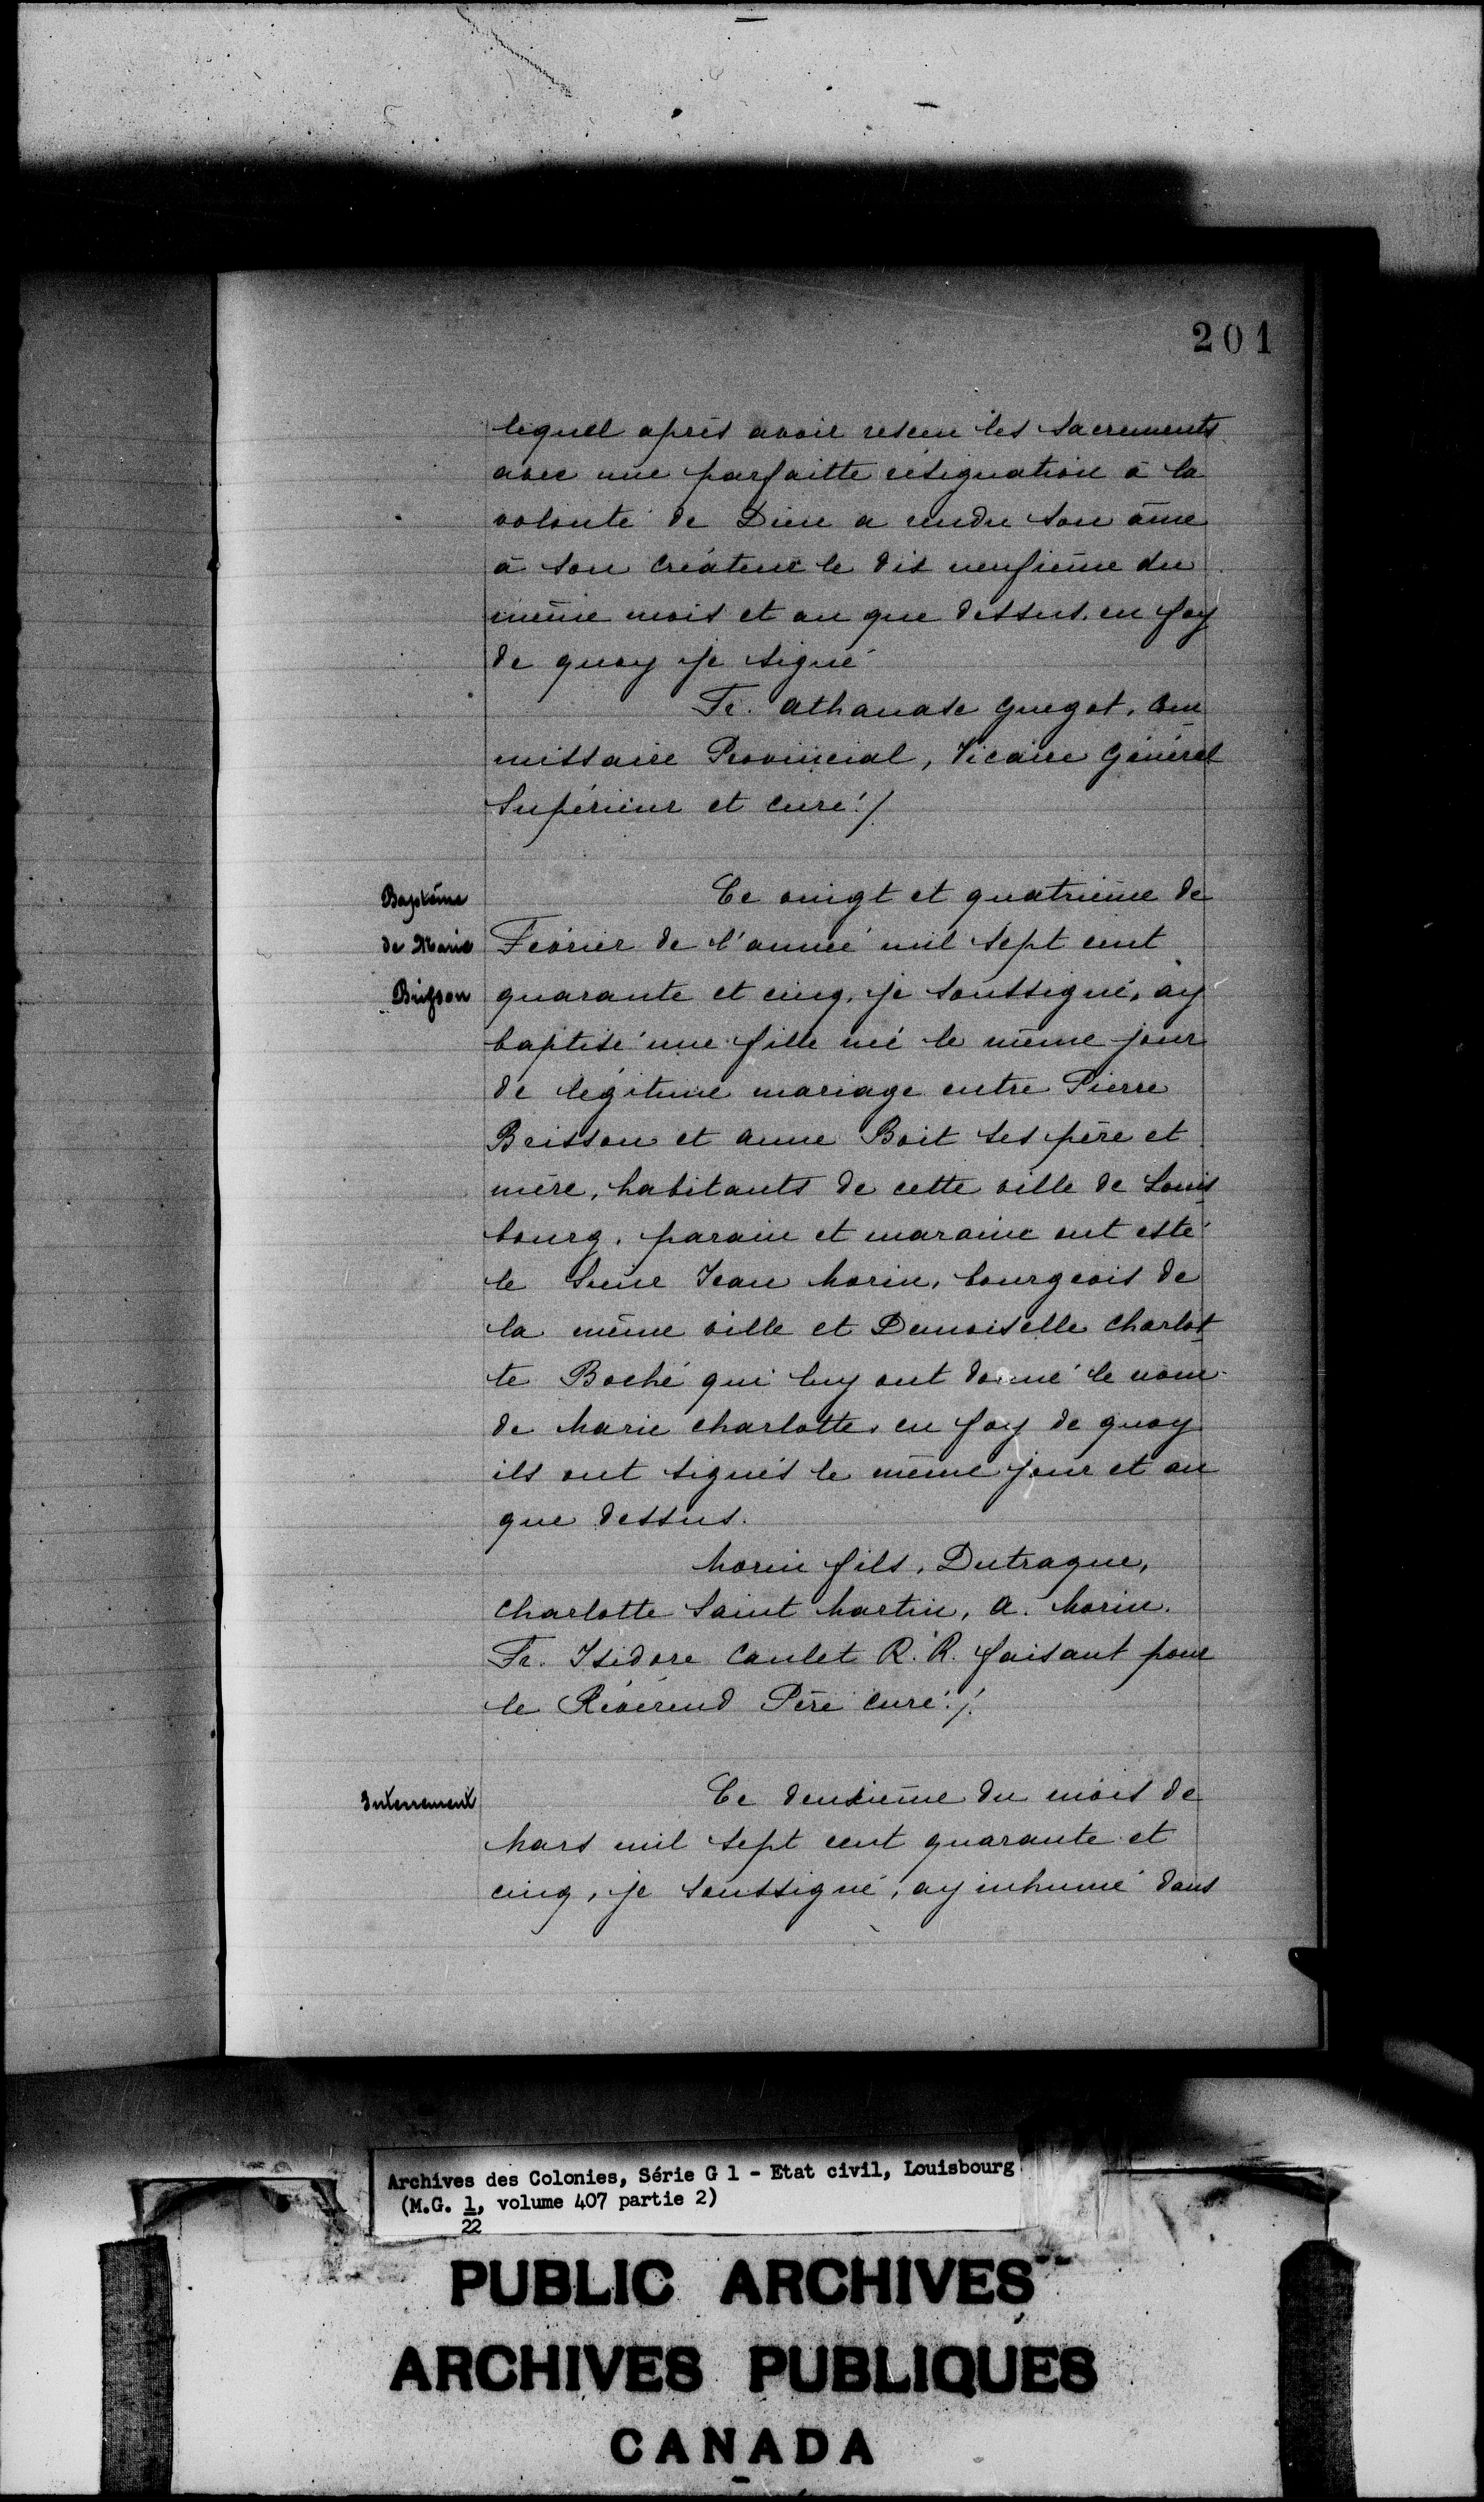 201
lequel après avoir resceu les Sacrements
avec une parfaitte résignation à la
volonté de Dieu a rendu son âme
à son créateur le dis neufième du
même mois et an que dessus. en foy
de quoy je signé
Fr. Athanase Guegot, Com
missaire Provincial, Vicaire Général
Supérieur et curé ./.
Baptême
de Marie
Brisson
Ce vingt et quatrième de
Février de l'année mil sept cent
quarante et cinq, je soussigné, ay
baptisé une fille née le même jour
de légitime mariage entre Pierre
Brisson et Anne Boit ses père et
mère, habitants de cette ville de Louis
bourg. parain et maraine ont esté
le Sieur Jean Morin, bourgeois de
la même ville et Demoiselle Charlot
te Boché qui luy ont donné le nom
de Marie Charlotte, en foy de quoy
ils ont signés le même jour et an
que dessus.
Morin fils, Dutraque,
Charlotte Saint Martin, A. Morin.
Fr. Isidore Caulet R. R. faisant pour
le Révérend Père curé ./.
Interrement
Ce deuxième du mois de
Mars mil sept cent quarante et
cinq, je soussigné, ay inhumé dans
Archives des Colonies, Série G 1 - Etat civil, Louisbourg
(M.G. 1, volume 407 partie 2)
22
PUBLIC ARCHIVES
ARCHIVES PUBLIQUES
CANADA